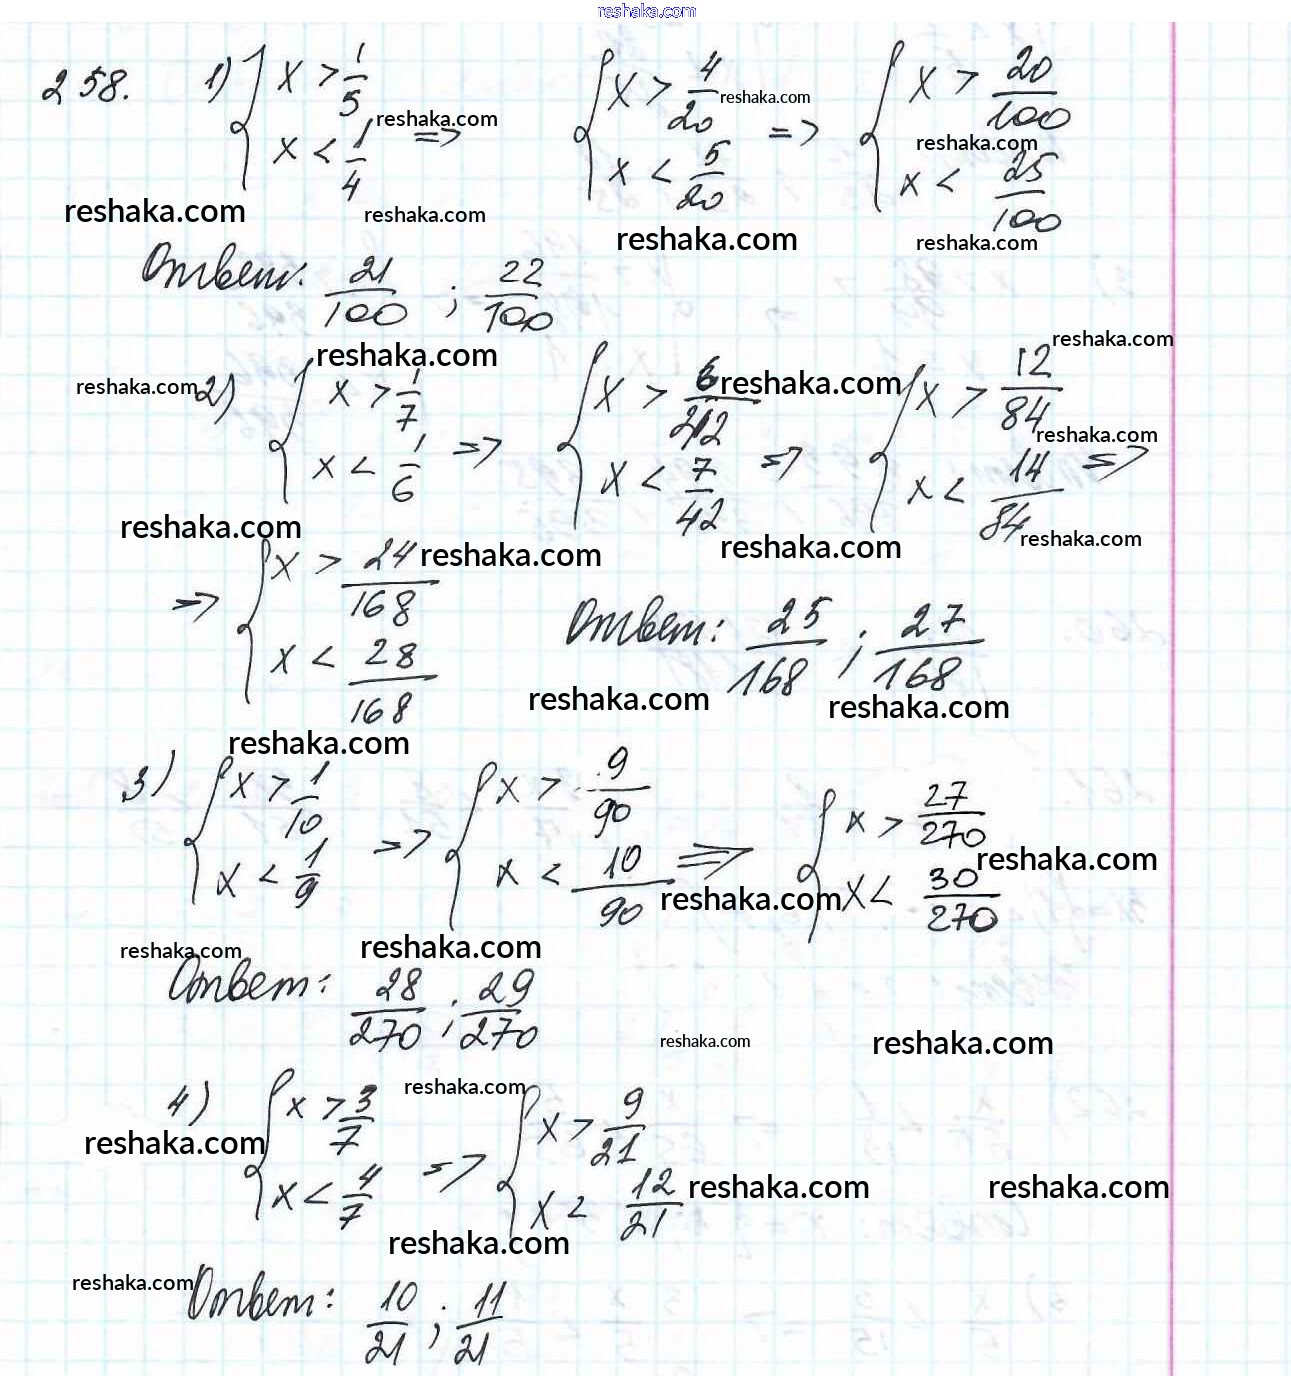 reshaka.com
258. 1) { x > 1/5 x < 1/4 => { x > 4/20 x < 5/20 => { x > 20/100 x < 25/100
reshaka.com reshaka.com reshaka.com reshaka.com
reshaka.com reshaka.com reshaka.com reshaka.com
Ответ: 21/100 ; 22/100
reshaka.com reshaka.com
reshaka.com reshaka.com
2) { x > 1/7 x < 1/6 => { x > 6/42 x < 7/42 => { x > 12/84 x < 14/84 =>
reshaka.com
reshaka.com reshaka.com reshaka.com reshaka.com
=> { x > 24/168 x < 28/168 Ответ: 25/168 ; 27/168
reshaka.com reshaka.com
reshaka.com
3) { x > 1/10 x < 1/9 => { x > 9/90 x < 10/90 => { x > 27/270 x < 30/270
reshaka.com reshaka.com
reshaka.com reshaka.com
Ответ: 28/270 ; 29/270
reshaka.com reshaka.com
reshaka.com
4) { x > 3/7 x < 4/7 => { x > 9/21 x < 12/21
reshaka.com reshaka.com reshaka.com
reshaka.com
reshaka.com
Ответ: 10/21 ; 11/21